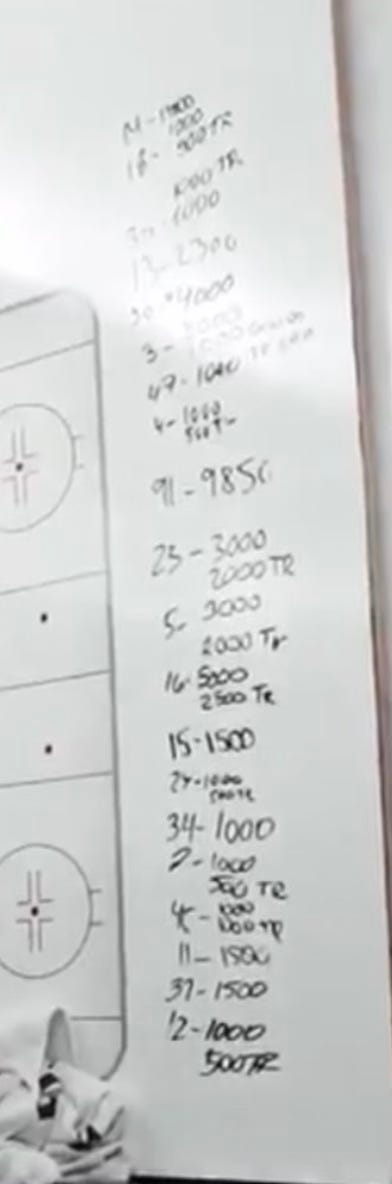 M-1500
1000
18- 500TR
1000 TR
-1000
13-2300
30-4000
3-
47-1000
4-1000
500T
91-9850
25-3000
2000TR
5- 3000
2000 Tr
16-5000
2500 TR
15-1500
27-1000
500TR
34-1000
2-1000
500 TR
1000 TR
11-1500
37-1500
12-1000
500TR